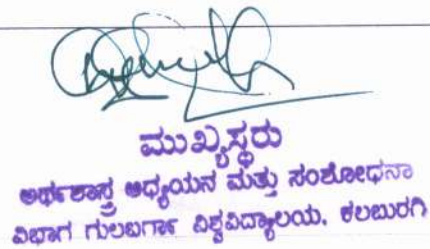 ಮುಖ್ಯಸ್ಥರು
ಅರ್ಥಶಾಸ್ತ್ರ ಅಧ್ಯಯನ ಮತ್ತು ಸಂಶೋಧನಾ
ವಿಭಾಗ ಗುಲಬರ್ಗಾ ವಿಶ್ವವಿದ್ಯಾಲಯ, ಕಲಬುರಗಿ